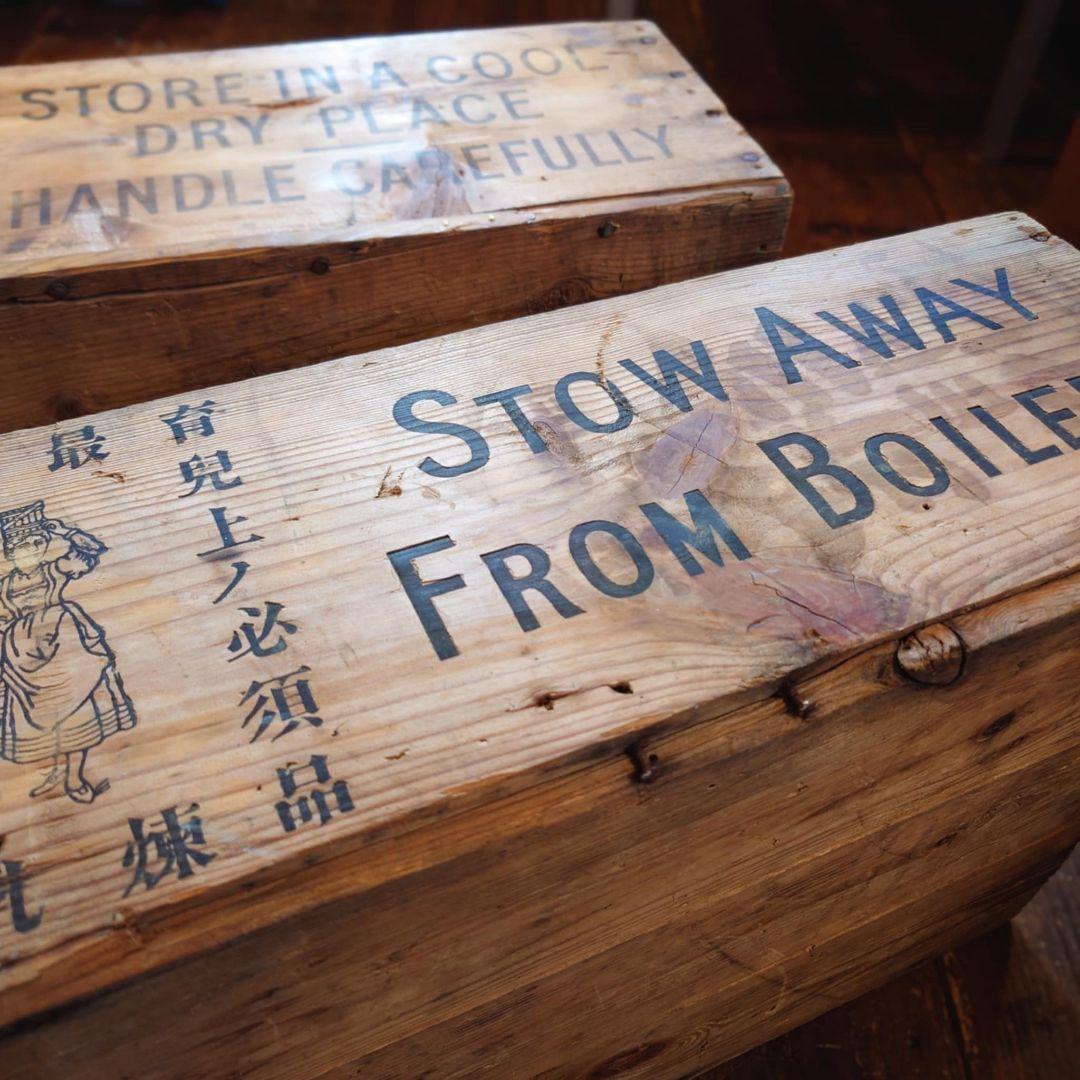 STORE IN A COOL
DRY PLACE
HANDLE CAREFULLY
STOW AWAY
FROM BOILE
育兒上ノ必須品
最
煉
乳